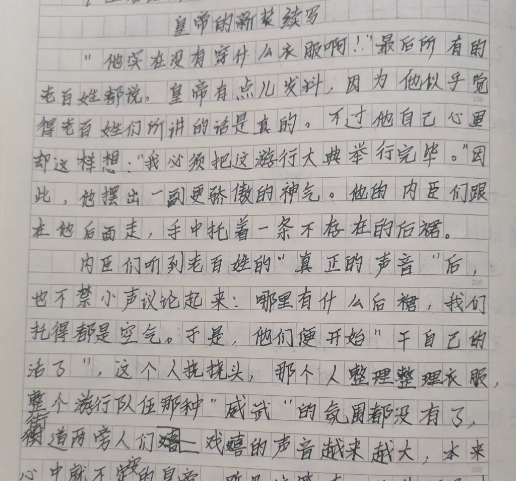 皇帝的新装续写
"他实在没有穿什么衣服啊!"最后所有的
老百姓都说。皇帝有点儿发抖,因为他似乎觉
得老百姓们所讲的话是真的。不过他自己心里
却这样想:"我必须把这游行大典举行完毕。"因
此,他摆出一副更骄傲的神气。他的内臣们跟
在他后面走,手中托着一条不存在的后裾。
内臣们听到老百姓的"真正的声音"后,
也不禁小声议论起来:哪里有什么后裾,我们
托得都是空气。于是,他们便开始"干自己的
活了",这个人挠挠头,那个人整理整理衣服,
整个游行队伍那种"威武"的氛围都没有了,
街道两旁人们嬉戏嬉的声音越来越大,本来
心中就不安的皇帝